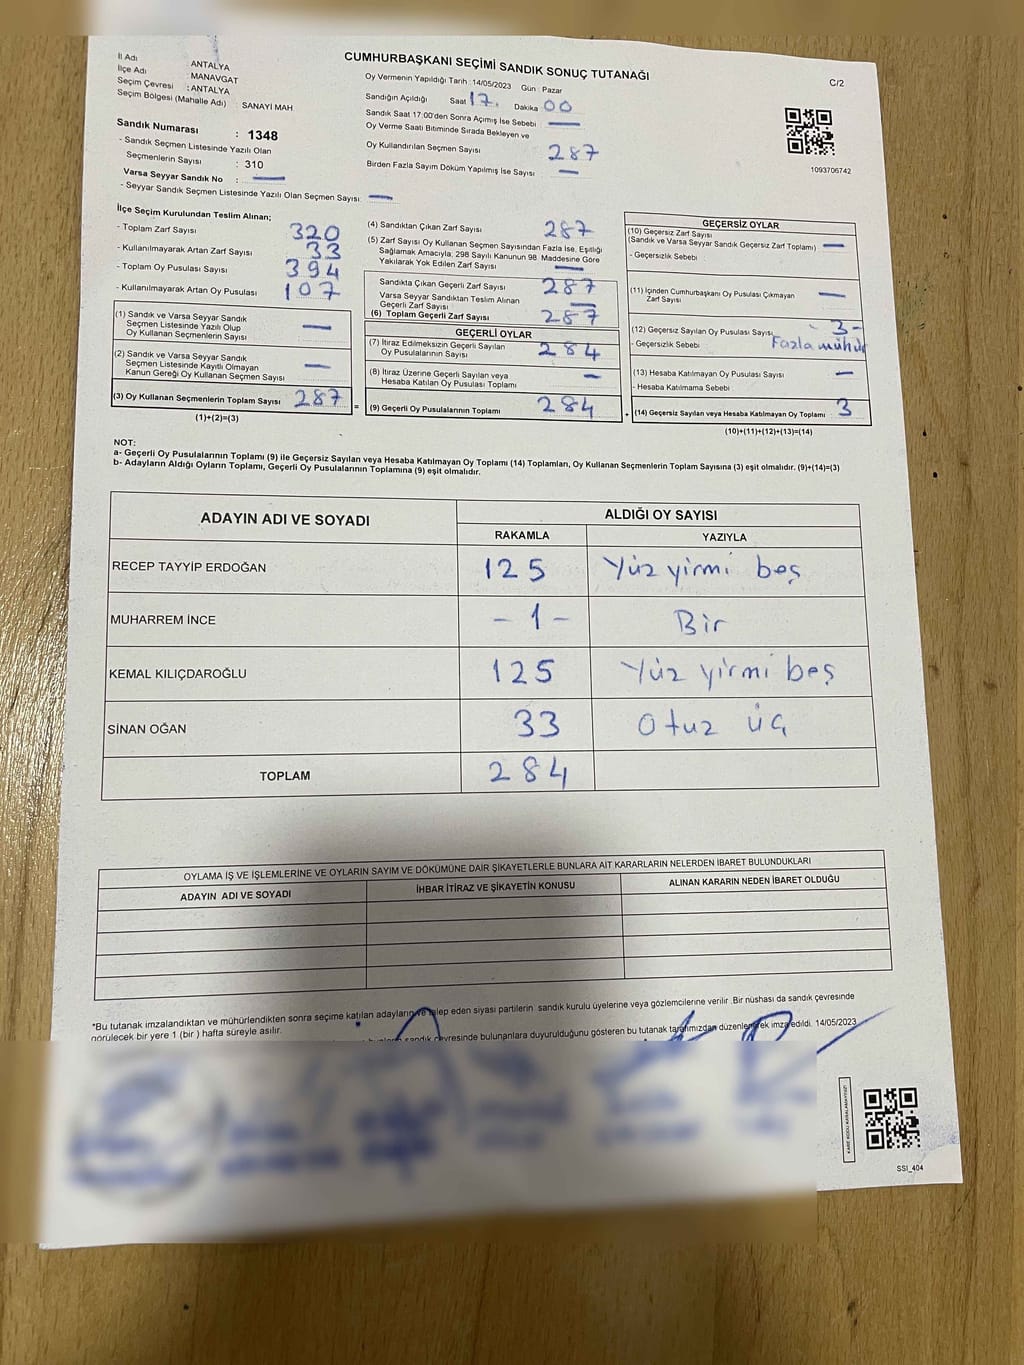 CUMHURBAŞKANI SEÇİMİ SANDIK SONUÇ TUTANAĞI
C/2
İl Adı ANTALYA
İlçe Adı MANAVGAT
Seçim Çevresi : ANTALYA
Seçim Bölgesi (Mahalle Adı) SANAYI MAH
Sandık Numarası : 1348
- Sandık Seçmen Listesinde Yazılı Olan
Seçmenlerin Sayısı : 310
Varsa Seyyar Sandık No : —
- Seyyar Sandık Seçmen Listesinde Yazılı Olan Seçmen Sayısı: —
Oy Vermenin Yapıldığı Tarih : 14/05/2023 Gün : Pazar
Sandığın Açıldığı Saat 17. Dakika 00
Sandık Saat 17:00'den Sonra Açımış İse Sebebi —
Oy Verme Saati Bitiminde Sırada Bekleyen ve
Oy Kullandırılan Seçmen Sayısı 287
Birden Fazla Sayım Döküm Yapılmış İse Sayısı —
1093706742
İlçe Seçim Kurulundan Teslim Alınan;
- Toplam Zarf Sayısı 320
- Kullanılmayarak Artan Zarf Sayısı 33
- Toplam Oy Pusulası Sayısı 394
- Kullanılmayarak Artan Oy Pusulası 107
(1) Sandık ve Varsa Seyyar Sandık
Seçmen Listesinde Yazılı Olup
Oy Kullanan Seçmenlerin Sayısı —
(2) Sandık ve Varsa Seyyar Sandık
Seçmen Listesinde Kayıtlı Olmayan
Kanun Gereği Oy Kullanan Seçmen Sayısı —
(3) Oy Kullanan Seçmenlerin Toplam Sayısı 287 =
(1)+(2)=(3)
(4) Sandıktan Çıkan Zarf Sayısı 287
(5) Zarf Sayısı Oy Kullanan Seçmen Sayısından Fazla İse, Eşitliği
Sağlamak Amacıyla; 298 Sayılı Kanunun 98. Maddesine Göre
Yakılarak Yok Edilen Zarf Sayısı —
Sandıkta Çıkan Geçerli Zarf Sayısı 287
Varsa Seyyar Sandıktan Teslim Alınan
Geçerli Zarf Sayısı —
(6) Toplam Geçerli Zarf Sayısı 287
GEÇERLİ OYLAR
(7) İtiraz Edilmeksizin Geçerli Sayılan
Oy Pusulalarının Sayısı 284
(8) İtiraz Üzerine Geçerli Sayılan veya
Hesaba Katılan Oy Pusulası Toplamı —
(9) Geçerli Oy Pusulalarının Toplamı 284 +
GEÇERSİZ OYLAR
(10) Geçersiz Zarf Sayısı
(Sandık ve Varsa Seyyar Sandık Geçersiz Zarf Toplamı) —
- Geçersizlik Sebebi
(11) İçinden Cumhurbaşkanı Oy Pusulası Çıkmayan
Zarf Sayısı —
(12) Geçersiz Sayılan Oy Pusulası Sayısı - 3 -
- Geçersizlik Sebebi Fazla mühür
(13) Hesaba Katılmayan Oy Pusulası Sayısı —
- Hesaba Katılmama Sebebi
(14) Geçersiz Sayılan veya Hesaba Katılmayan Oy Toplamı 3
(10)+(11)+(12)+(13)=(14)
NOT:
a- Geçerli Oy Pusulalarının Toplamı (9) ile Geçersiz Sayılan veya Hesaba Katılmayan Oy Toplamı (14) Toplamları, Oy Kullanan Seçmenlerin Toplam Sayısına (3) eşit olmalıdır. (9)+(14)=(3)
b- Adayların Aldığı Oyların Toplamı, Geçerli Oy Pusulalarının Toplamına (9) eşit olmalıdır.
ADAYIN ADI VE SOYADI ALDIĞI OY SAYISI
RAKAMLA YAZIYLA
RECEP TAYYİP ERDOĞAN 125 Yüz yirmi beş
MUHARREM İNCE - 1 - Bir
KEMAL KILIÇDAROĞLU 125 Yüz yirmi beş
SİNAN OĞAN 33 Otuz üç
TOPLAM 284
OYLAMA İŞ VE İŞLEMLERİNE VE OYLARIN SAYIM VE DÖKÜMÜNE DAİR ŞİKAYETLERLE BUNLARA AİT KARARLARIN NELERDEN İBARET BULUNDUKLARI
ADAYIN ADI VE SOYADI İHBAR İTİRAZ VE ŞİKAYETİN KONUSU ALINAN KARARIN NEDEN İBARET OLDUĞU
*Bu tutanak imzalandıktan ve mühürlendikten sonra seçime katılan adayların ve talep eden siyasi partilerin sandık kurulu üyelerine veya gözlemcilerine verilir .Bir nüshası da sandık çevresinde
görülecek bir yere 1 (bir ) hafta süreyle asılır.
sandık çevresinde bulunanlara duyurulduğunu gösteren bu tutanak tarafımızdan düzenlenerek imza edildi. 14/05/2023
SSI_404